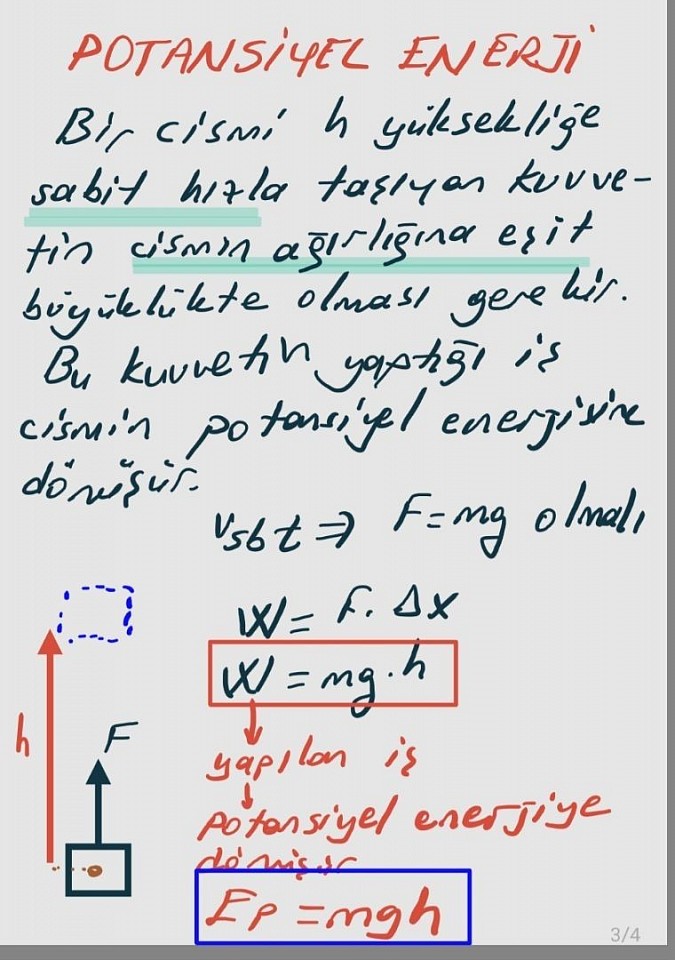 POTANSİYEL ENERJİ
Bir cismi h yüksekliğe
sabit hızla taşıyan kuvve-
tin cismin ağırlığına eşit
büyüklükte olması gerekir.
Bu kuvvetin yaptığı iş
cismin potansiyel enerjisine
dönüşür.
Vsbt ⇒ F=mg olmalı
W = F. Δx
W = mg.h
h
F
yapılan iş
potansiyel enerjiye
dönüşür
Ep = mgh
3/4